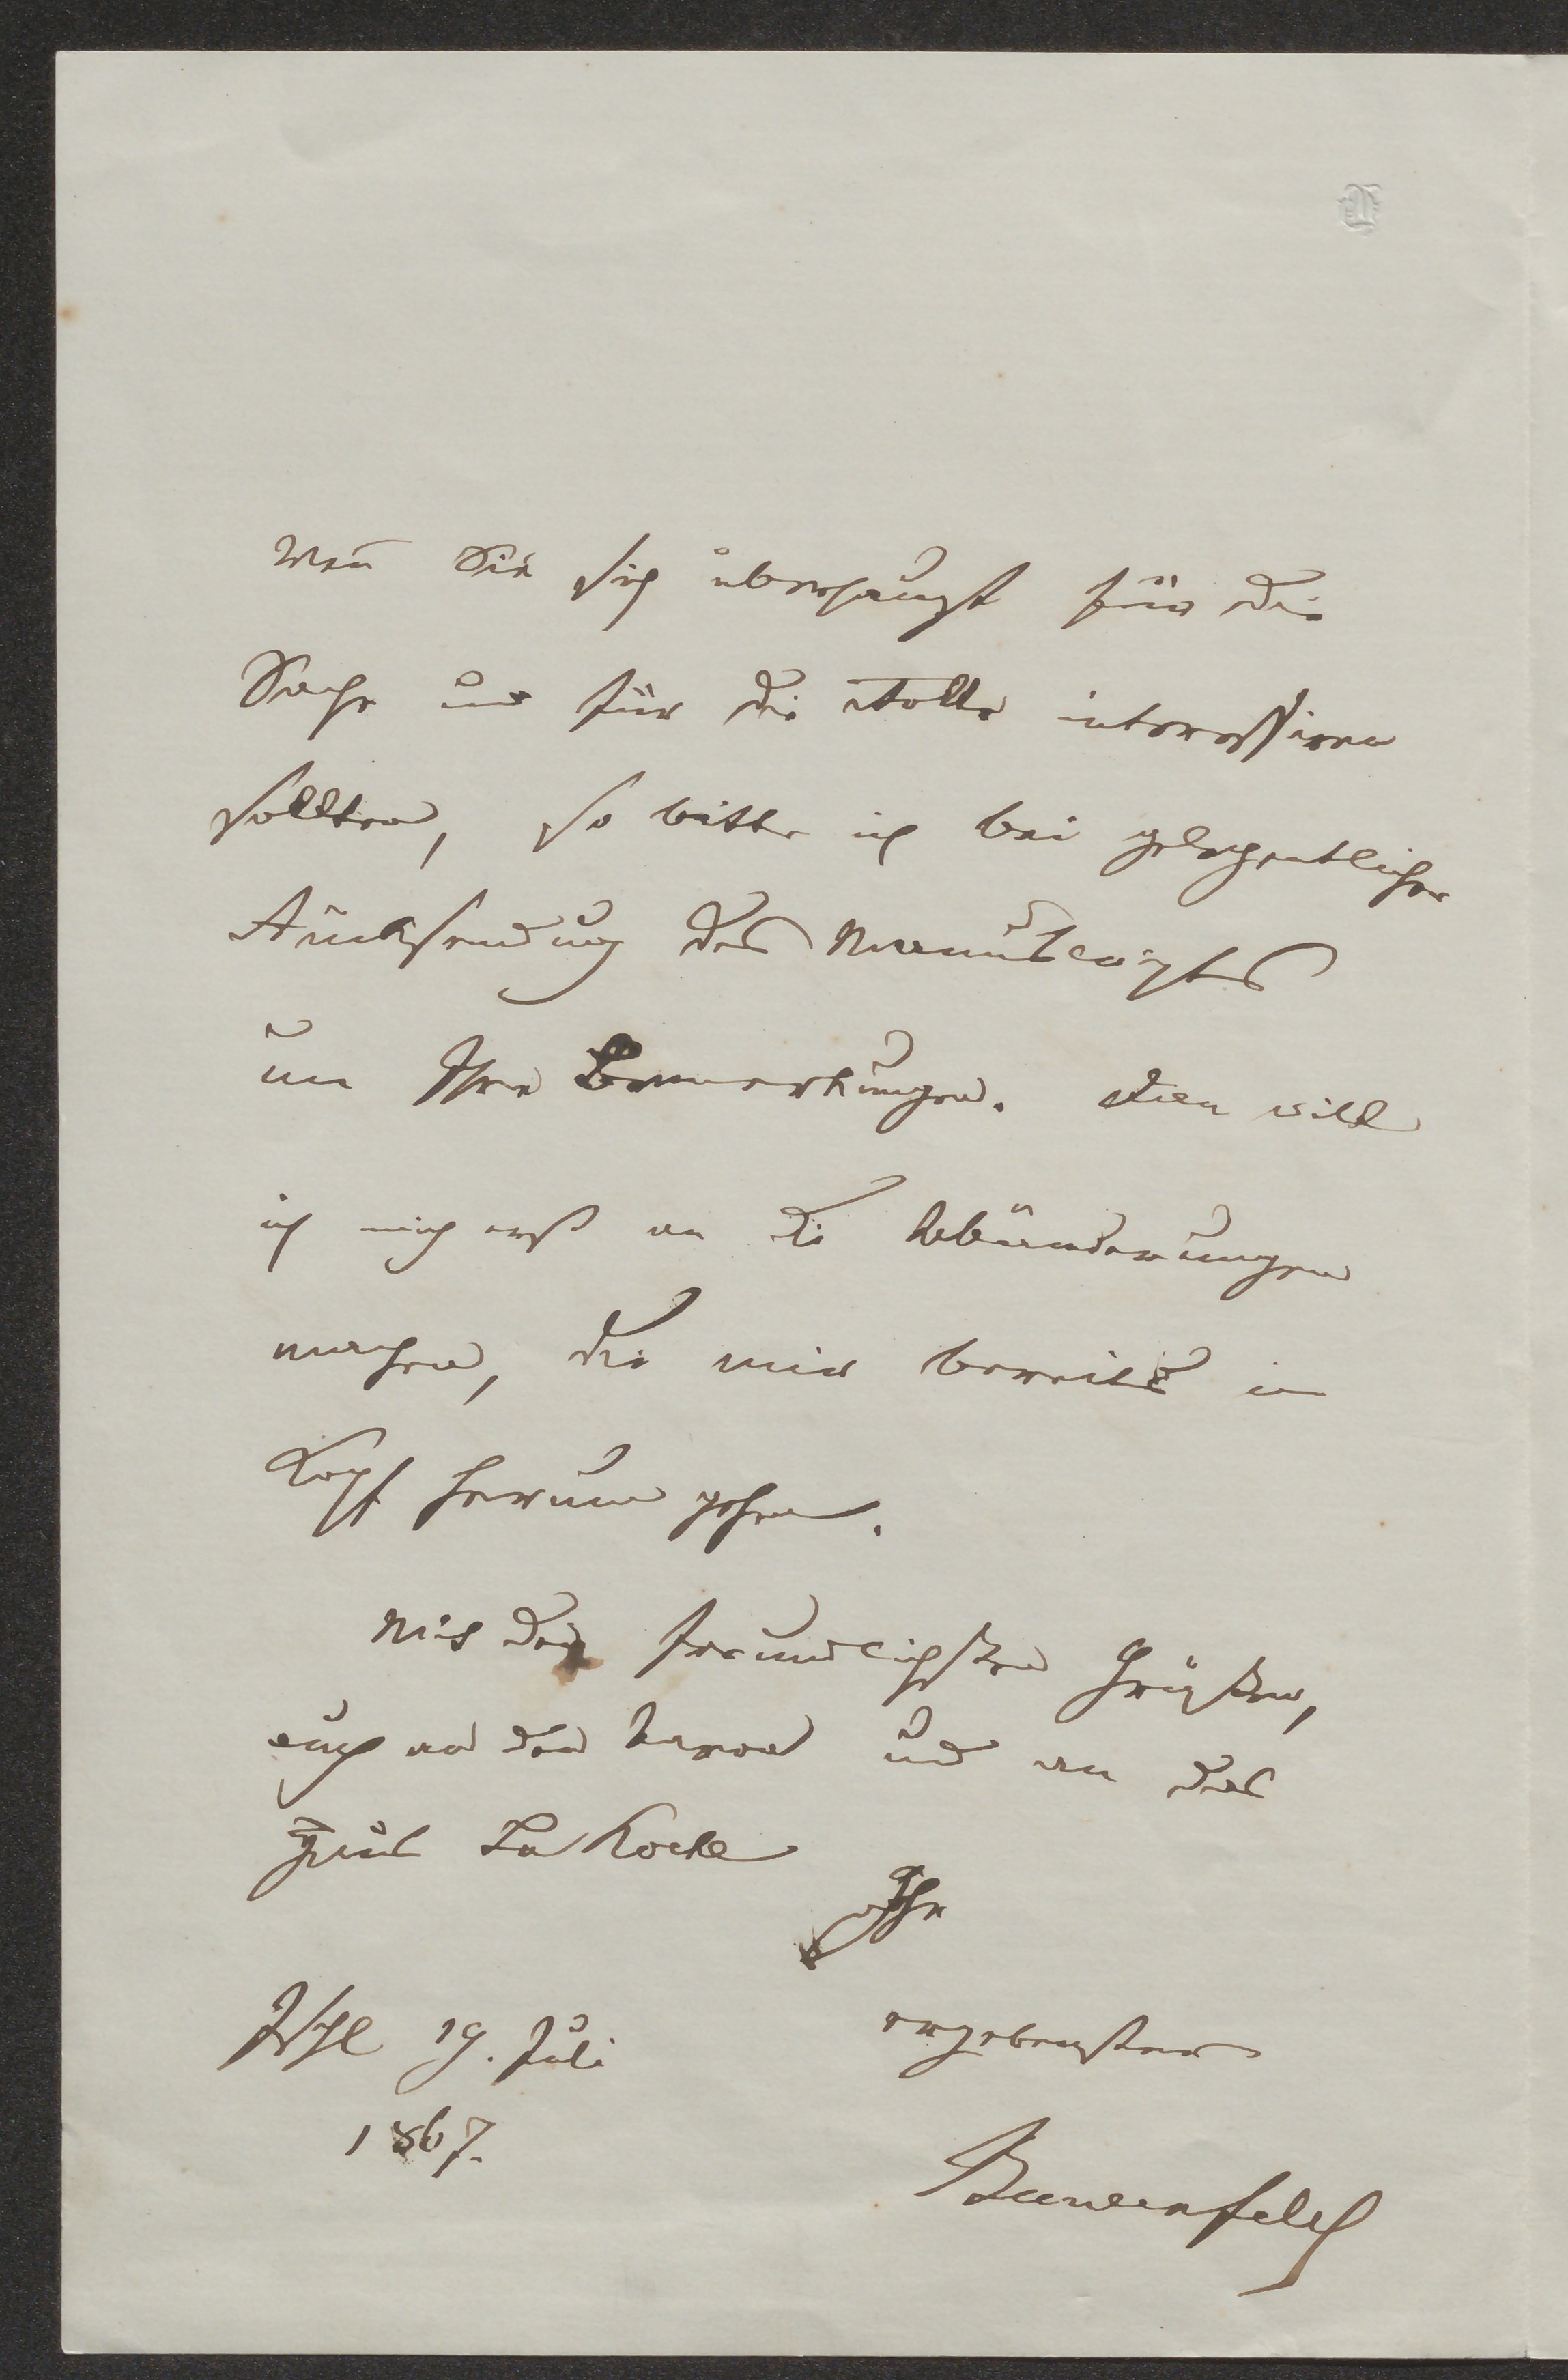 Wen̄ Sie sich überhaupt für die
Sache und für die Rolle interessiren
sollten, so bitte ich bei gelegentlicher
Rücksendung des Manuscriptes
um Ihre Bemerkungen. Dan will
ich mich erst an die Abänderungen
machen, die mir bereits im
Kopf herum gehen.
Mit den freundlichsten Grüßen,
auch an den Baron und an das
Haus La Roche
Ihr
Ischl 19. Juli
ergebenster
1867.
Bauernfeld